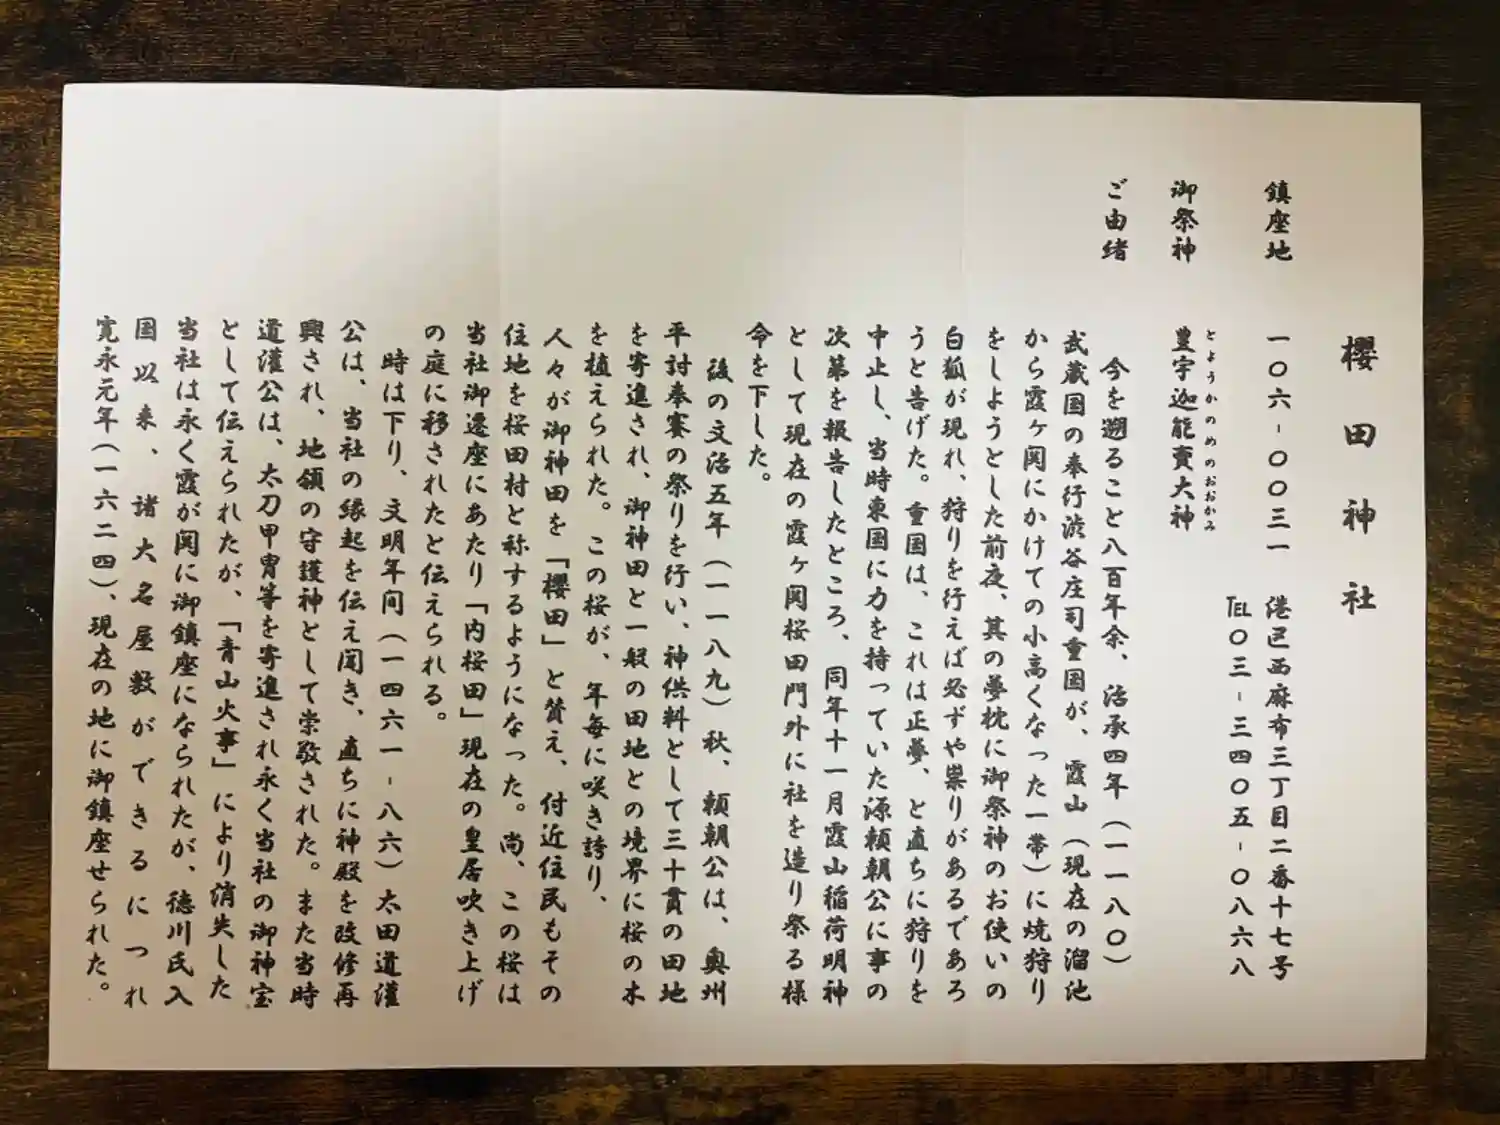 櫻田神社
鎮座地 一〇六-〇〇三一 港区西麻布三丁目二番十七号
℡〇三-三四〇五-〇八六八
とようかのめのおおかみ
御祭神 豊宇迦能賣大神
ご由緒
今を遡ること八百年余、治承四年(一一八〇)
武蔵国の奉行渋谷庄司重国が、霞山(現在の溜池
から霞ヶ関にかけての小高くなった一帯)に焼狩り
をしようとした前夜、其の夢枕に御祭神のお使いの
白狐が現れ、狩りを行えば必ずや祟りがあるであろ
うと告げた。重国は、これは正夢、と直ちに狩りを
中止し、当時東国に力を持っていた源頼朝公に事の
次第を報告したところ、同年十一月霞山稲荷明神
として現在の霞ヶ関桜田門外に社を造り祭る様
令を下した。
後の文治五年(一一八九)秋、頼朝公は、奥州
平討奉賽の祭りを行い、神供料として三十貫の田地
を寄進され、御神田と一般の田地との境界に桜の木
を植えられた。この桜が、年毎に咲き誇り、
人々が御神田を「櫻田」と賛え、付近住民もその
住地を桜田村と称するようになった。尚、この桜は
当社御遷座にあたり「内桜田」現在の皇居吹き上げ
の庭に移されたと伝えられる。
時は下り、文明年间(一四六一-八六)太田道灌
公は、当社の縁起を伝え聞き、直ちに神殿を改修再
興され、地領の守護神として崇敬された。また当時
道灌公は、太刀甲冑等を寄進され永く当社の御神宝
として伝えられたが、「青山火事」により消失した
当社は永く霞が関に御鎮座になられたが、徳川氏入
国以来、諸大名屋敷ができるにつれ
寛永元年(一六二四)、現在の地に御鎮座せられた。